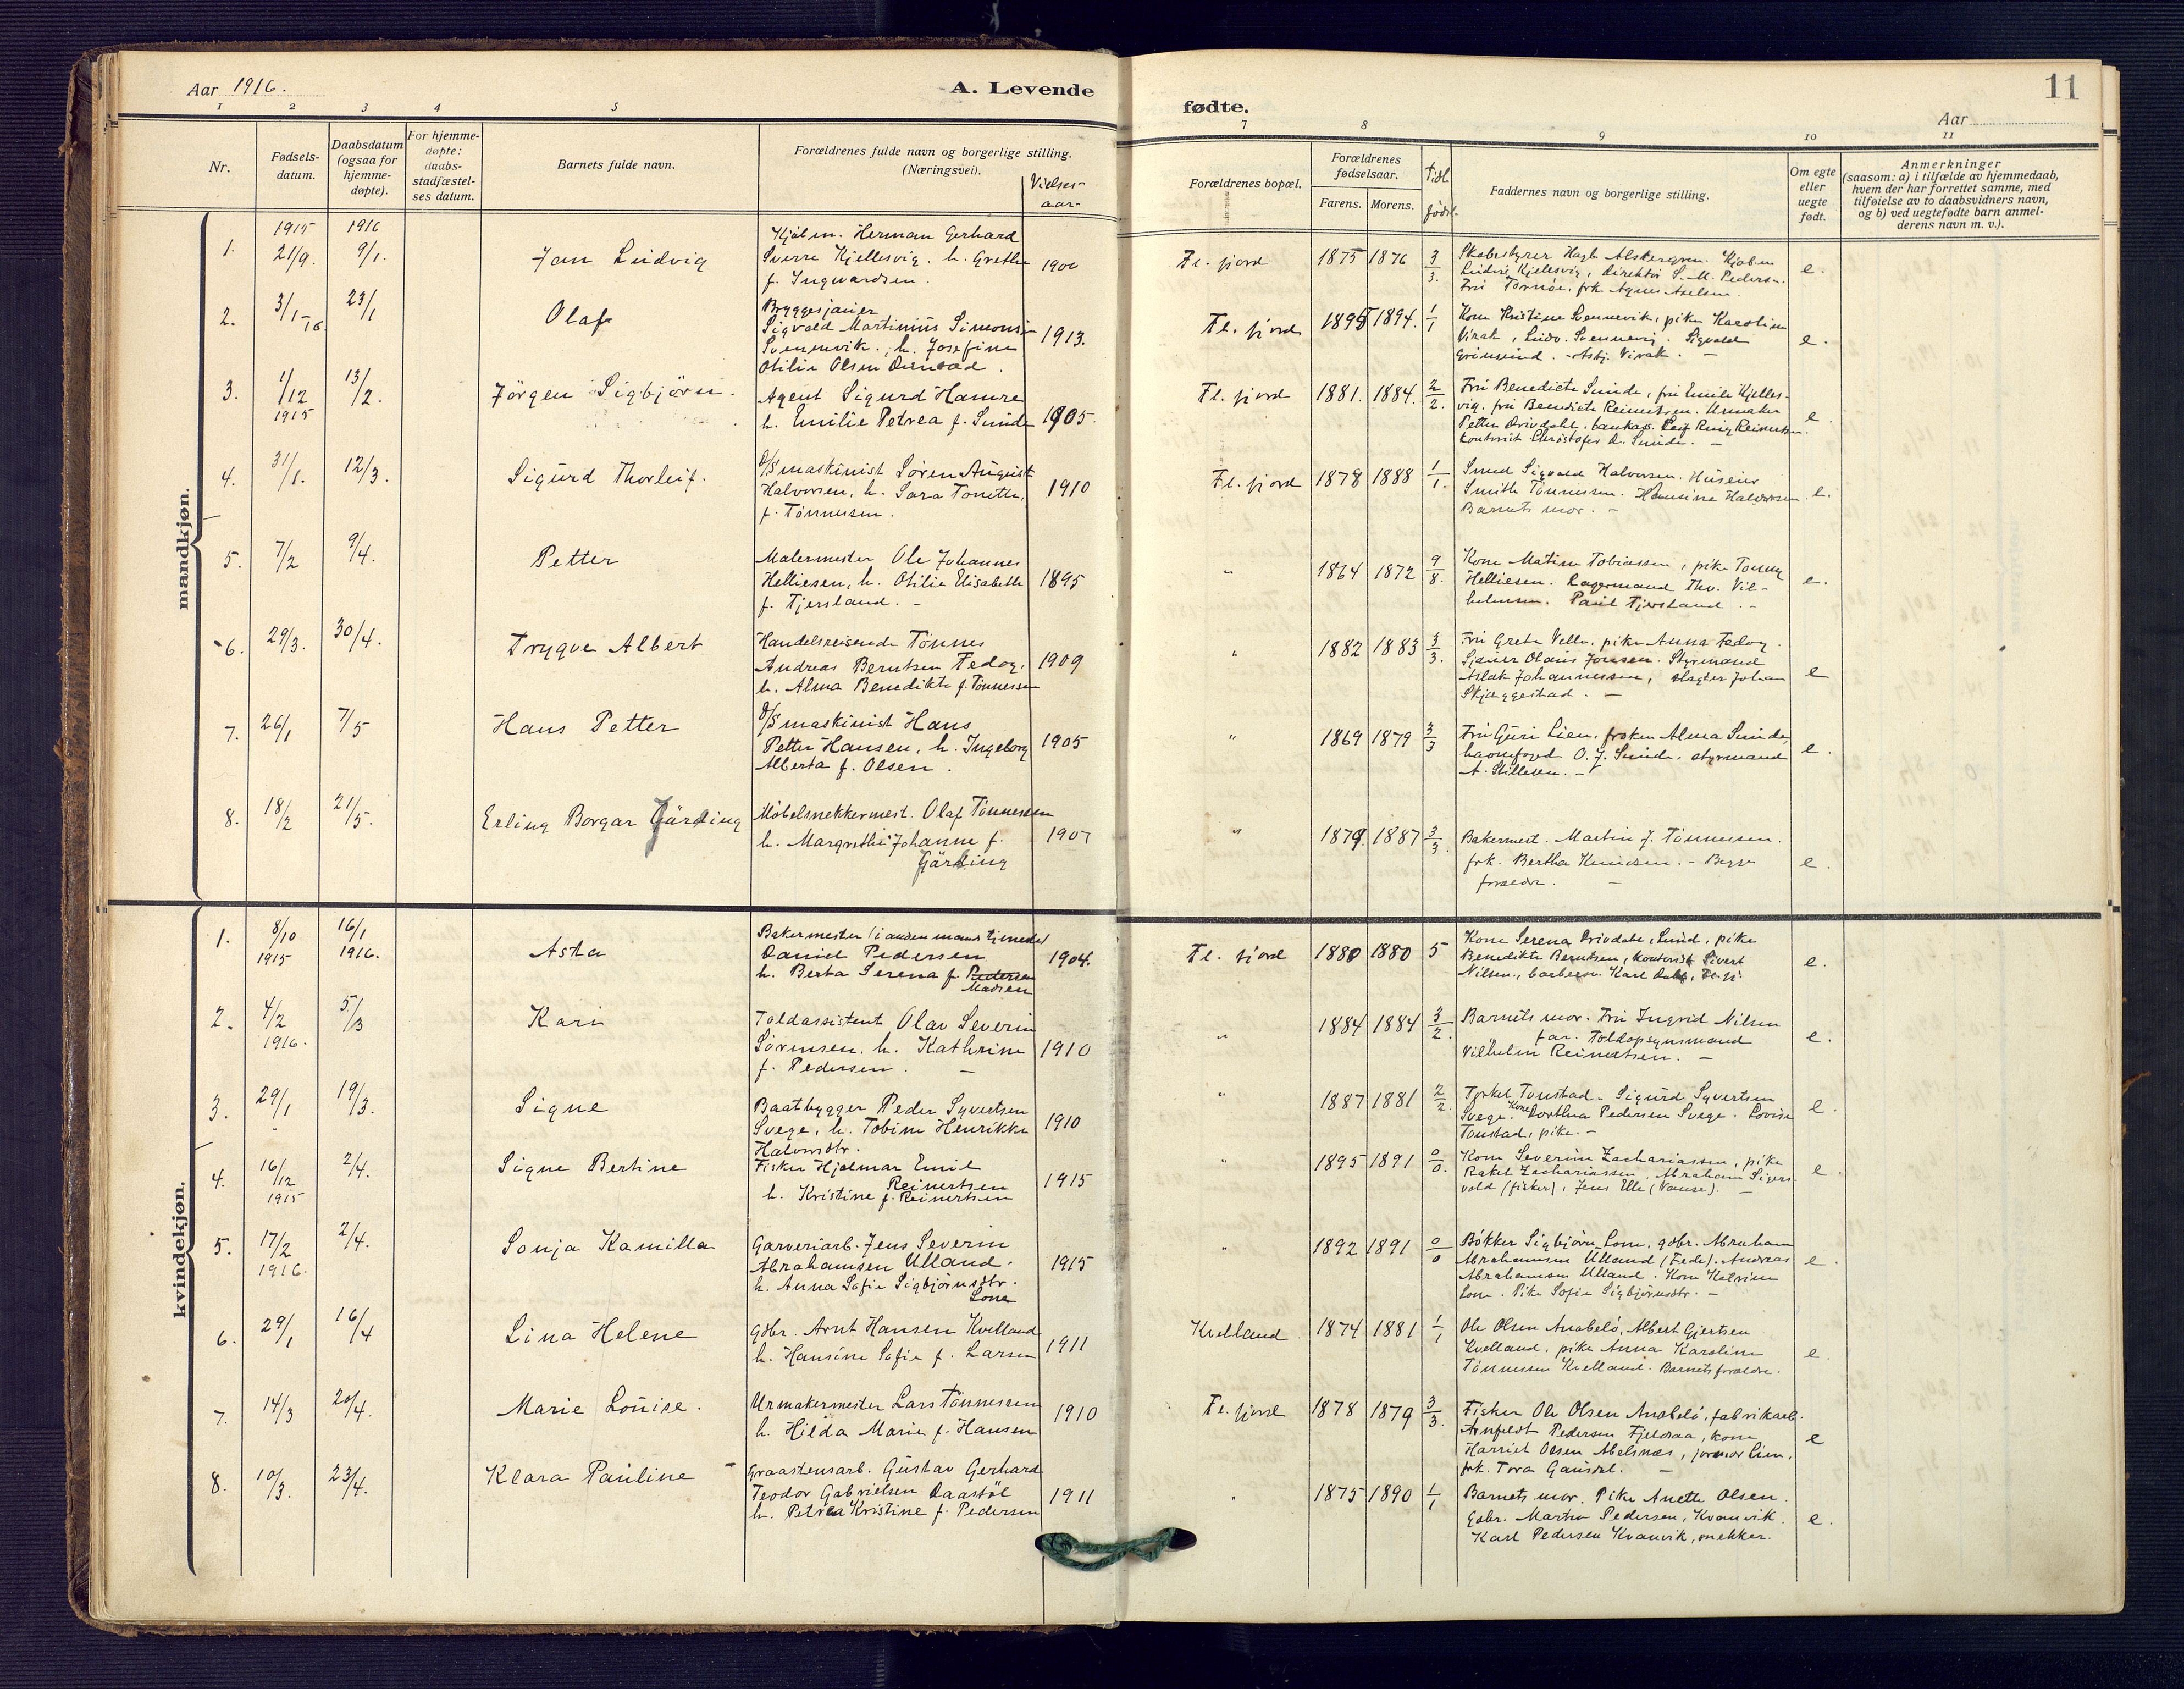 Aar 1916.
A. Levende
1 2 3 4 5
Nr.
Fødsels-
datum.
Daabsdatum
(ogsaa for
hjemme-
døpte).
For hjemme-
døpte:
daabs-
stadfæstel-
ses datum.
Barnets fulde navn.
Forældrenes fulde navn og borgerlige stilling.
(Næringsvei).
Vielses-
aar.
mandkjøn.
1915 1916
1. 21/9. 9/1. Jan Ludvig
Kjøbm. Herman Gerhard
Sverre Kjellesvig. h. Grethe
f. Ingwardsen.
1900
2. 3/1-16. 23/1 Olaf
Bryggesjauer
Sigvald Martinius Simonsen
Svennevik., h. Josefine
Otilie Olsen
1913.
3. 1/12 1915 13/2. Jörgen Sigbjörn.
Agent Sigurd Hamre
h. Emilie Petrea f. Sunde
1905.
4. 31/1. 12/3. Sigurd Thorleif.
D/S maskinist Sören August
Halvorsen, h. Sara Tonette,
f. Tönnessen.
1910
5. 7/2 9/4. Petter
Malermester Ole Johannes
Helliesen, h. Otilie Elisabeth
f. Tjersland. -
1895
6. 29/3. 30/4. Trygve Albert
Handelsreisende Tönnes
Andreas Berntsen Fedog.
h. Alma Benedikte f. Tönnessen
1909
7. 26/1 7/5 Hans Petter
D/S maskinist Hans
Petter Hansen, h. Ingeborg
Alberta f. Olsen.
1905
8. 18/2 21/5. Erling Borgar Gärding
Möbelsnekkermest. Olaf Tönnessen
h. Margrethe Johanne f.
Gärding
1907
kvindekjøn.
1. 8/10 1915 16/1 1916. Asta
Bakermester (i anden mands tjeneste)
Daniel Pedersen
h. Berta Serena f. Pedersen
Madsen
1904.
2. 4/2 1916. 5/3 Kari
Toldassistent Olav Severin
Sörensen. h. Kathrine
f. Pedersen. -
1910
3. 29/1 19/3. Signe
Baatbygger Peder Syvertsen
Svege, h. Tobine Henrikke
Halvorsdtr.
1910
4. 16/12 1915 2/4. Signe Bertine
Fisker Hjalmar Emil
Reinertsen
h. Kristine f. Reinertsen
1915
5. 17/2 1916. 2/4. Sonja Kamilla
Garveriarb. Jens Severin
Abrahamsen Ulland.
h. Anna Sofie Sigbjörnsdtr.
Lone
1915
6. 29/1 16/4 Lina Helene
Gdbr. Arnt Hansen Kvelland
h. Hansine Sofie f. Larsen
1911
7. 14/3 20/4. Marie Louise.
Urmakermester Lars Tönnessen
h. Hilda Marie f. Hansen
1910
8. 10/3. 23/4. Klara Pauline
Graastensarb. Gustav Gerhard
Teodor Gabrielsen Daastöl
h. Petrea Kristine f. Pedersen
1911
11
fødte.
Aar
7 8 9 10 11
Forældrenes bopæl.
Forældrenes
fødselsaar.
Farens. Morens.
Tidl.
föds.
Faddernes navn og borgerlige stilling.
Om egte
eller
uegte
født.
Anmerkninger
(saasom: a) i tilfælde av hjemmedaab,
hvem der har forrettet samme, med
tilføielse av to daabsvidners navn,
og b) ved uegtefødte barn anmel-
derens navn m. v.).
Fl. fjord 1875 1876 3/3.
Skobestyrer Hagb. Kjøbm
Ludvig Kjellesvig, direktör S. M. Pedersen.
Fru Törnöe, frk. Agnes Axelsen.
e.
Fl. fjord 1895 1894. 1/1
Kone Kristine Svennevik, pike Karoline
Virak, Ludv. Svennevig. Sigvald
Grimsund. - Asbj. Virak. -
e.
Fl. fjord 1881. 1884. 2/2.
Fru Benedicte Sunde, fru Emilie Kjelles-
vig. fru Benedicte Reinertsen. Urmaker
Petter Drivdahl. Leif Ring Reinertsen.
kontorist Christofer A. Sunde. -
e
Fl. fjord 1878 1888 1/1.
Smed Sigvald Halvorsen. Huseier
Smith Tönnessen. Hansine Halvorsen
Barnets mor. -
e.
" 1864 1872 9/8.
Kone Matine Tobiassen, pike Tonny
Helliesen. Lagermand Thv. Vil-
helmsen. Paul Tjersland. -
e.
" 1882 1883 3/3.
Fru Grete Velle. pike Anna Fedog.
Sjauer Olaus Jonsen. Styrmand
Aslak Johannessen, slagter Johan
Skjæggestad. -
e
" 1869 1879 3/3
Fru Guri Lien, fröken Alma Sunde,
havnefoged O. J. Sunde. styrmand
A. Stillesen. -
e.
" 1879. 1887 3/3
Bakermest. Martin J. Tönnessen.
frk. Bertha Knudsen. - Begge
forældre. -
e.
Fl. fjord 1880 1880 5
Kone Serena Drivdahl, Lund, pike
Benedikte Berntsen, kontorist Sivert
Nilsen, barbersv. Karl Dahl, Fl.fj.
e.
" 1884 1884 3/2.
Barnets mor. Fru Ingrid Nilsen
far. Toldopsynsmand
Vilhelm Reinertsen. -
e.
" 1887 1881 2/2
Torkel Tonstad - Sigurd Syvertsen
Svege. Kone Dorthea Pedersen Svege. Lovise
Tonstad, pike. -
e.
" 1895 1891 0/0.
Kone Severine Zachariassen, pike
Rakel Zachariassen. Abraham Sigers-
vold (fisker), Jens Elle (Vanse). -
e
" 1892 1891 0/0
Bökker Sigbjörn Lone, gdbr. Abraham
Abrahamsen Ulland (Fede). Andreas
Abrahamsen Ulland. Kone Katrine
Lone. Pike Sofie Sigbjörnsdtr. -
e.
Kvelland. 1874 1881 1/1
Ole Olsen Anabelö, Albert Gjertsen
Kvelland. pike Anna Karoline
Tönnessen Kvelland. Barnets forældre.
e.
Fl. fjord 1878 1879 3/3.
Fisker Ole Olsen Anabelö, fabrikarb.
Arnfeldt Pedersen Fjeldsaa, kone
Harriet Olsen Abelsnæs, jormor Lien.
frk. Tora Gausdal. -
e
" 1875 1890 1/1
Barnets mor. Pike Anette Olsen.
Gdbr. Martin Pedersen, Kvanvik.
Karl Pedersen Kvanvik, snekker.
e.